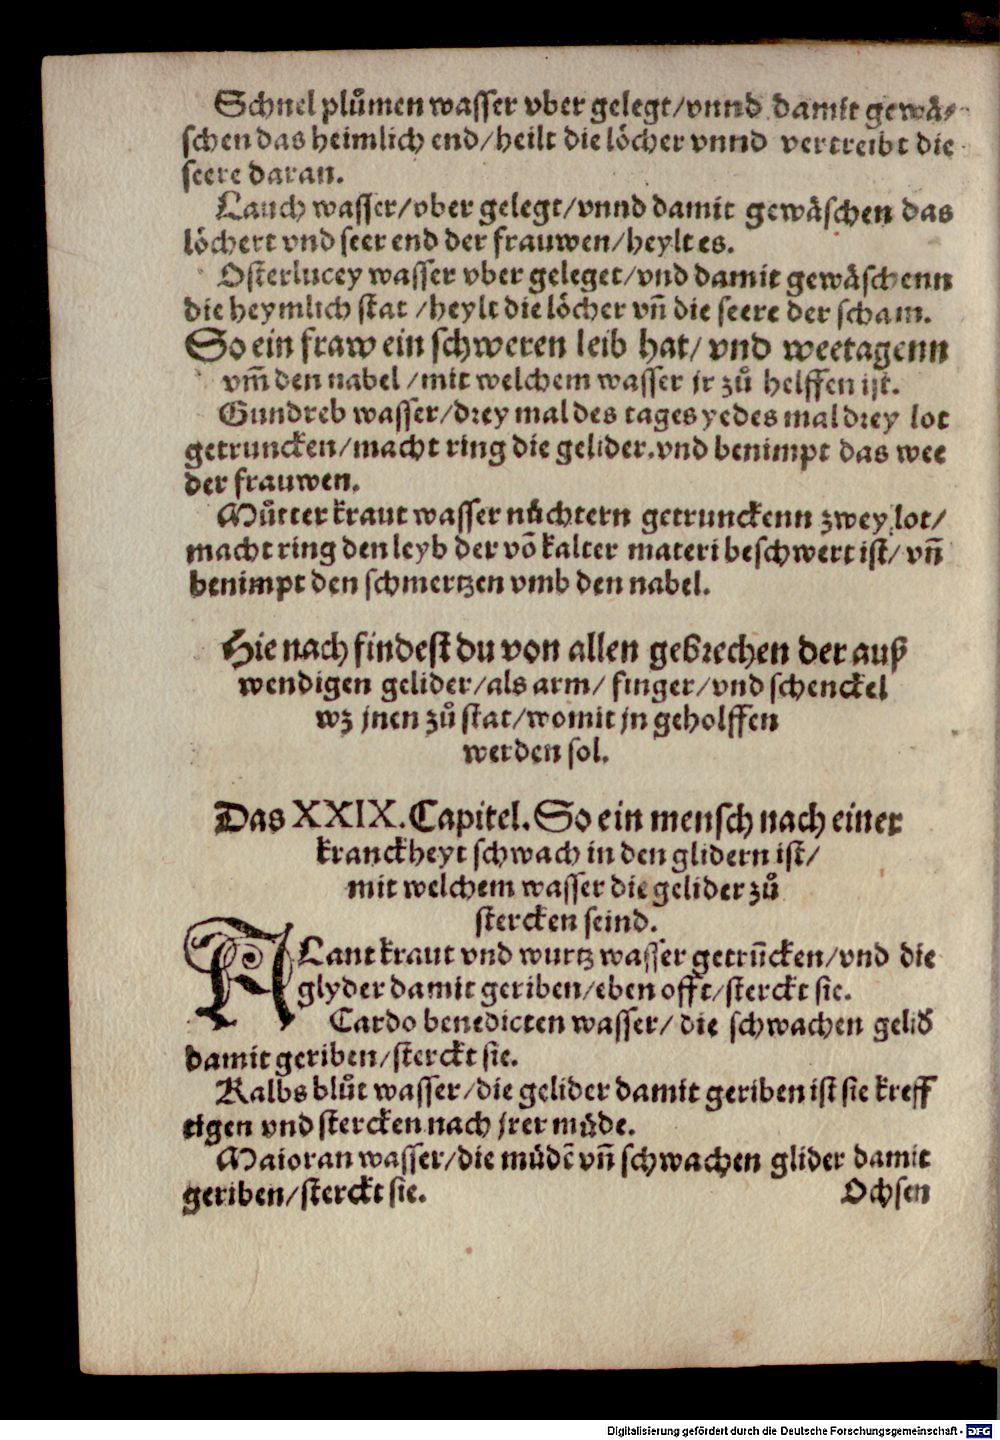 Schnel plůmen wasser vber gelegt/vnnd damit gewä⸗
schen das heimlich end/heilt die löcher vnnd vertreibt die
seere daran.
Lauch wasser/vber gelegt/vnnd damit gewäschen das
löchert vnd seer end der frauwen/heylt es.
Osterlucey wasser vber geleget/vnd damit gewäschenn
die heymlich stat /heylt die löcher vñ die seere der scham.
So ein fraw ein schweren leib hat/ vnd weetagenn
vm̄ den nabel /mit welchem wasser jr zů helffen ist.
Gundreb wasser/drey mal des tages yedes mal drey lot
getruncken/macht ring die gelider.vnd benimpt das wee
der frauwen.
Můtter kraut wasser nüchtern getrunckenn zwey lot/
macht ring den leyb der võ kalter materi beschwert ist/ vñ
benimpt den schmertzen vmb den nabel.
Hie nach findest du von allen gebrechen der auß
wendigen gelider/als arm/ finger/vnd schenckel
wz jnen zů stat/womit jn geholffen
werden sol.
Das XXIX. Capitel. So ein mensch nach einer
kranckheyt schwach in den glidern ist/
mit welchem wasser die gelider zů
stercken seind.
ALant kraut vnd wurtz wasser getrūcken/vnd die
glyder damit geriben/eben offt/sterckt sie.
Cardo benedicten wasser/ die schwachen gelid̄
damit geriben/sterckt sie.
Kalbs blůt wasser/die gelider damit geriben ist sie kreff
tigen vnd stercken nach jrer müde.
Maioran wasser/die müdē vñ schwachen glider damit
geriben/sterckt sie. Ochsen
Digitalisierung gefördert durch die Deutsche Forschungsgemeinschaft - DFG